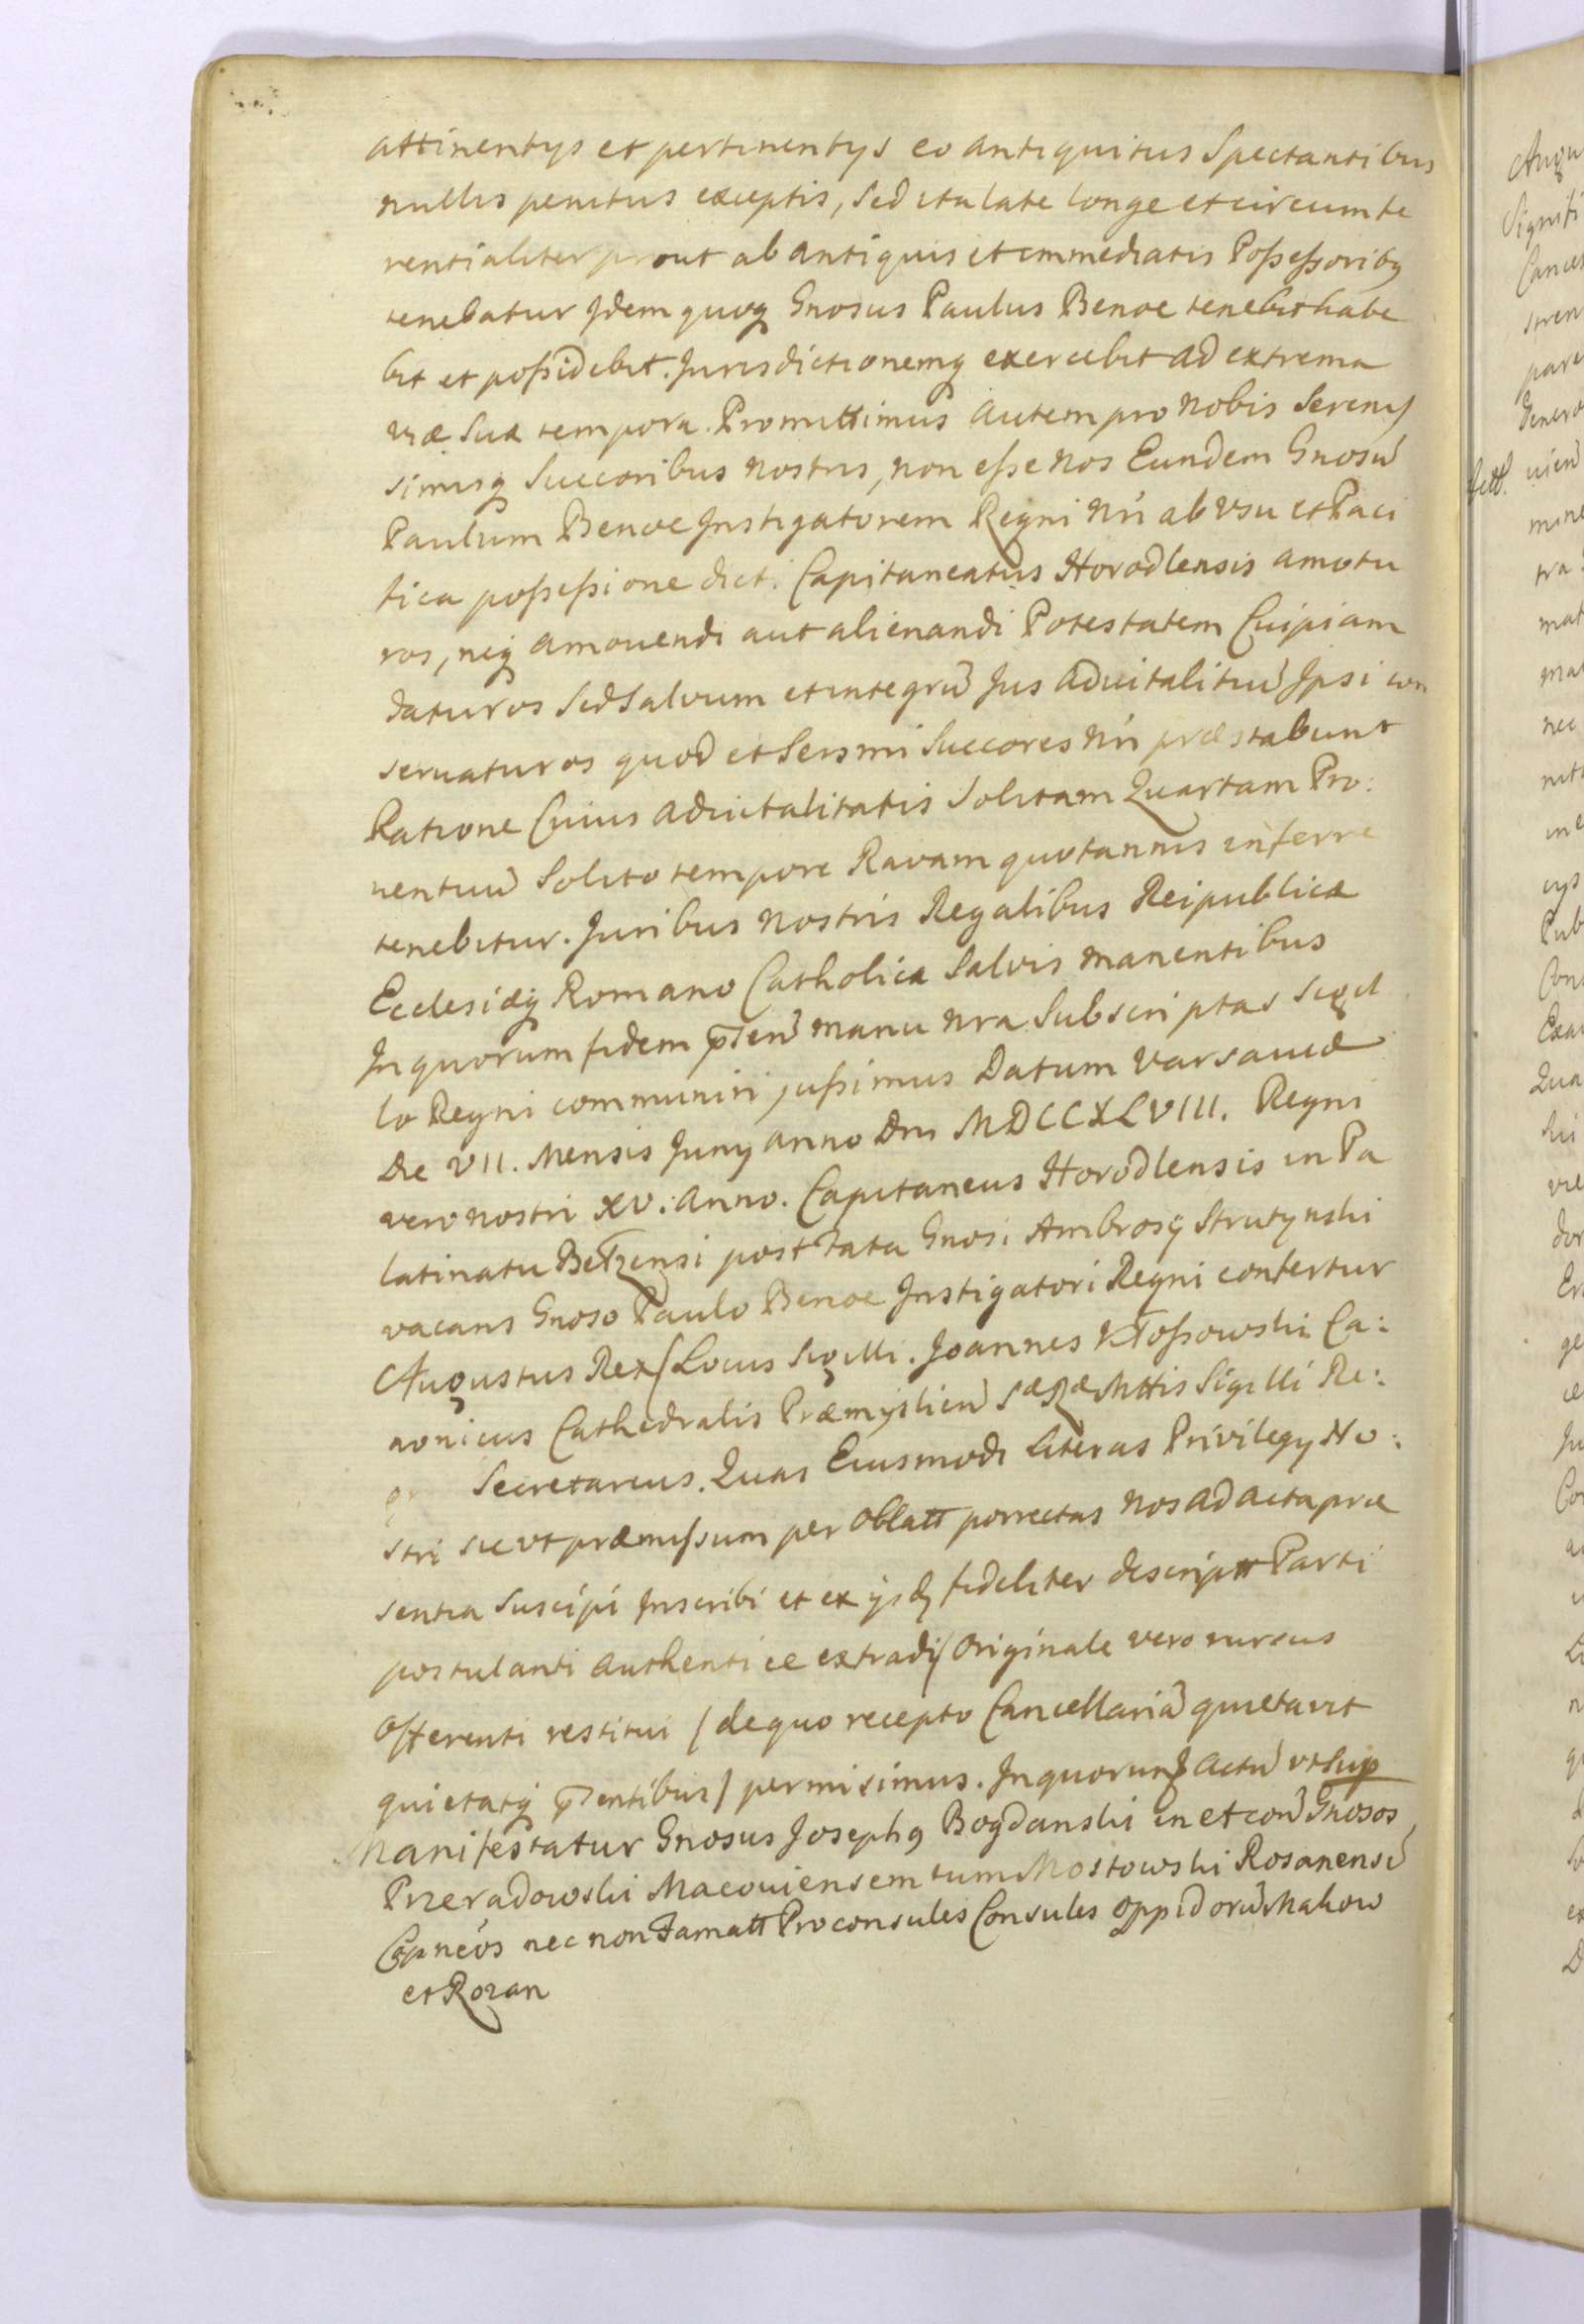 attinentys et pertinentys eo antiquitus Spectantibus
nullis penitus exceptis, Sed ita late longe et circumfe
rentialiter prout ab antiquis et immediatis Poßeßoribq
tenebatur Idem quoq Gnosus Paulus Benoe tenebit habe
bit et poßidebit. Jurisdictionemq exercebit ad extrema
vitæ Suæ tempora. Promittimus autem pro nobis Sereniſ
simisq Succoribus nostris, non eße nos Eundem Gnosū
Paulum Benoe Instigatorem Regni Nri ab vsu et Paci
fica poßeßione dict. Capitaneatus Horodlensis amotu
ros, neq amouendi aut alienandi Potestatem Cuipiam
daturos Sed Salvum et integrū Jus aduitalitiū Ipsi con
seruaturos quod et Sersmi Succores Nri præstabunt
Ratione Cuius aduitalitatis Solitam Quartam Pro:
uentuū Solito tempore Ravam quotannis inferre
tenebitur. Juribus nostris Regalibus Reipublicæ
Ecclesiæq Romano Catholicæ Salvis manentibus
In quorum fidem pñten manu nra Subscriptas Sigil
lo Regni communiri jußimus Datum Varsauiæ
Die VII. Mensis Juny anno Dni MDCCXLVIII. Regni
vero nostri XV. anno. Capitaneus Horodlensis in Pa
latinatu Betzensi post fata Gnosi Ambrosÿ Strutynski
vacans Gnoso Paulo Benoe Instigatori Regni confertur
Augustus Rex / Locus Sigilli. Joannes Kłoßowski Ca:
nonicus Cathedralis Præmislien Sæ Ræ Mttis Sigilli Re:
Secretarius. Quas Eiusmodi literas Privilegy No:
stri sic vt præmiſsum per Oblatt porrectas nos ad acta præ
sentia Suscipi Inscribi et ex ijsdq fideliter descriptt Parti
postulanti authentice extradi / Originale vero rursus
Offerenti restitui / de quo recepto Cancellariā quietavit
quietatq pñtentibus / permisimus. In quorum actū vt Sup
Manifestatur Gnosus Josephq Bogdanski in et con Gnosos
Przeradowski Macouiensem tum Mostowski Rosanensē
Capneos nec non Famatt Proconsules Consules oppidorū Makow
et Rozan